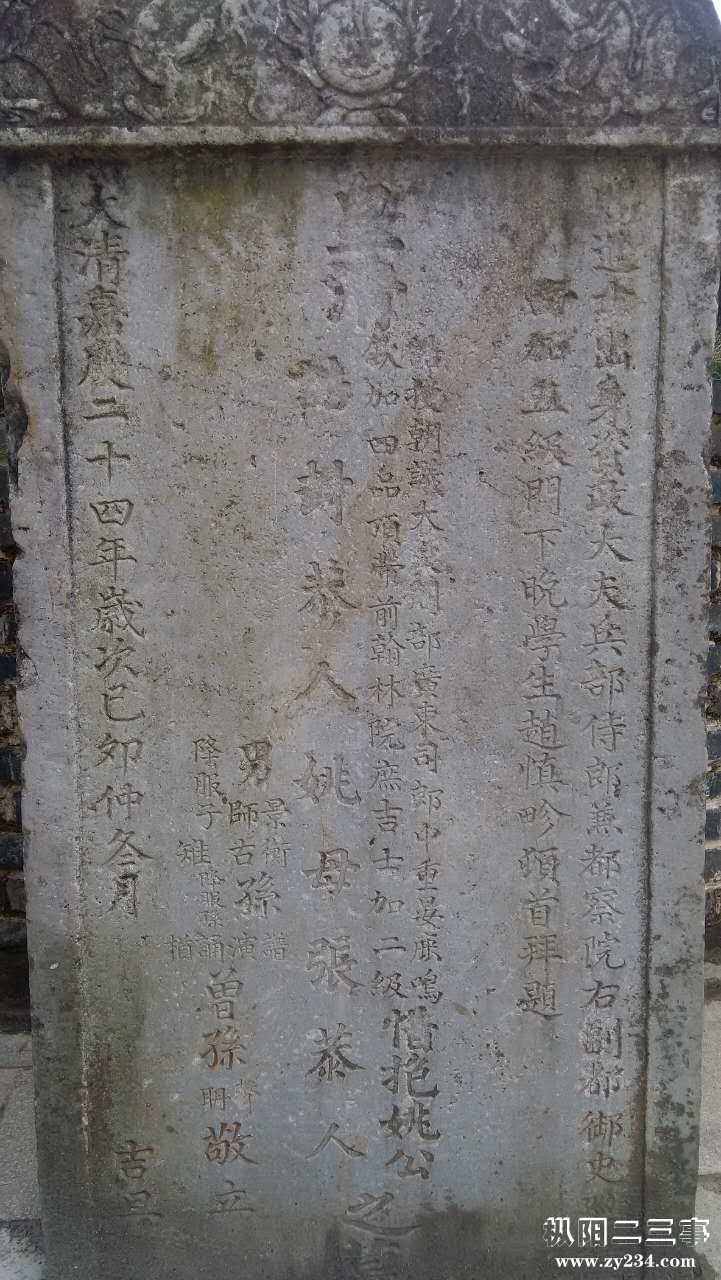 進士出身資政大夫兵部侍郎兼都察院右副都御史
加五級門下晚學生趙慎畛頓首拜題
皇清
朝議大夫刑部廣東司郎中重宴鹿鳴
欽加四品頂帶前翰林院庶吉士加二級
惜抱姚公
封恭人姚母張恭人
之墓
男
景衡
師古
雉
降服子
孫
誧
演
誦
降服孫
曾孫
聲
敬立
大清嘉慶二十四年歲次已卯仲冬月
吉旦
枞阳二三事
www.zy234.com